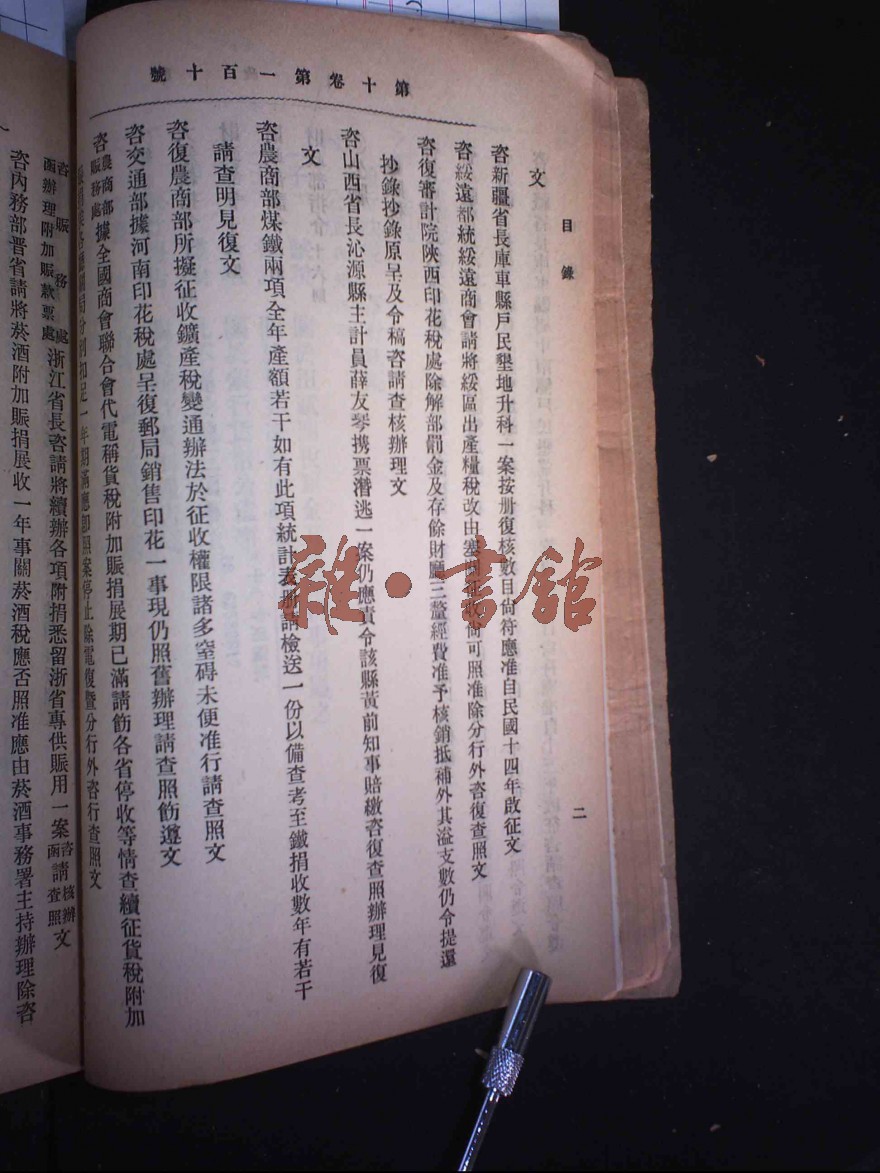 第十卷第一百十號
目錄
二
文
咨新疆省長庫車縣戶民墾地升科一案按册復核數目尙符應准自民國十四年啟征文
咨綏遠都統綏遠商會請將綏區出產糧税改由塞 尙可照准除分行外咨復查照文
咨復審計院陝西印花稅處除解部罰金及存餘財廳三釐經費准予核銷抵補外其溢支數仍令提還
抄錄抄錄原呈及令稿咨請查核辦理文
咨山西省長沁源縣主計員薛友琴携票潛逃一案仍應責令該縣黃前知事賠繳咨復查照辦理見復
文
咨農商部煤鐵兩項全年產額若干如有此項統計表册請檢送一份以備查考至鐵捐收數年有若干
請查明見復文
咨復農商部所擬征收鑛產稅變通辦法於征收權限諸多窒碍未便准行請查照文
咨交通部據河南印花稅處呈復郵局銷售印花一事現仍照舊辦理請查照飭遵文
咨農商部賑務處據全國商會聯合會代電稱貨稅附加賑捐展期已滿請飭各省停收等情查續征貨稅附加
一年期滿應卽照案停止除電復暨分行外咨行查照文
咨賑務處函辦理附加賑款票處浙江省長咨請將續辦各項附捐悉留浙省專供賑用一案咨請核辦函查照文
咨內務部晋省請將菸酒附加賑捐展收一年事關菸酒稅應否照准應由菸酒事務署主持辦理除咨
雜·書館